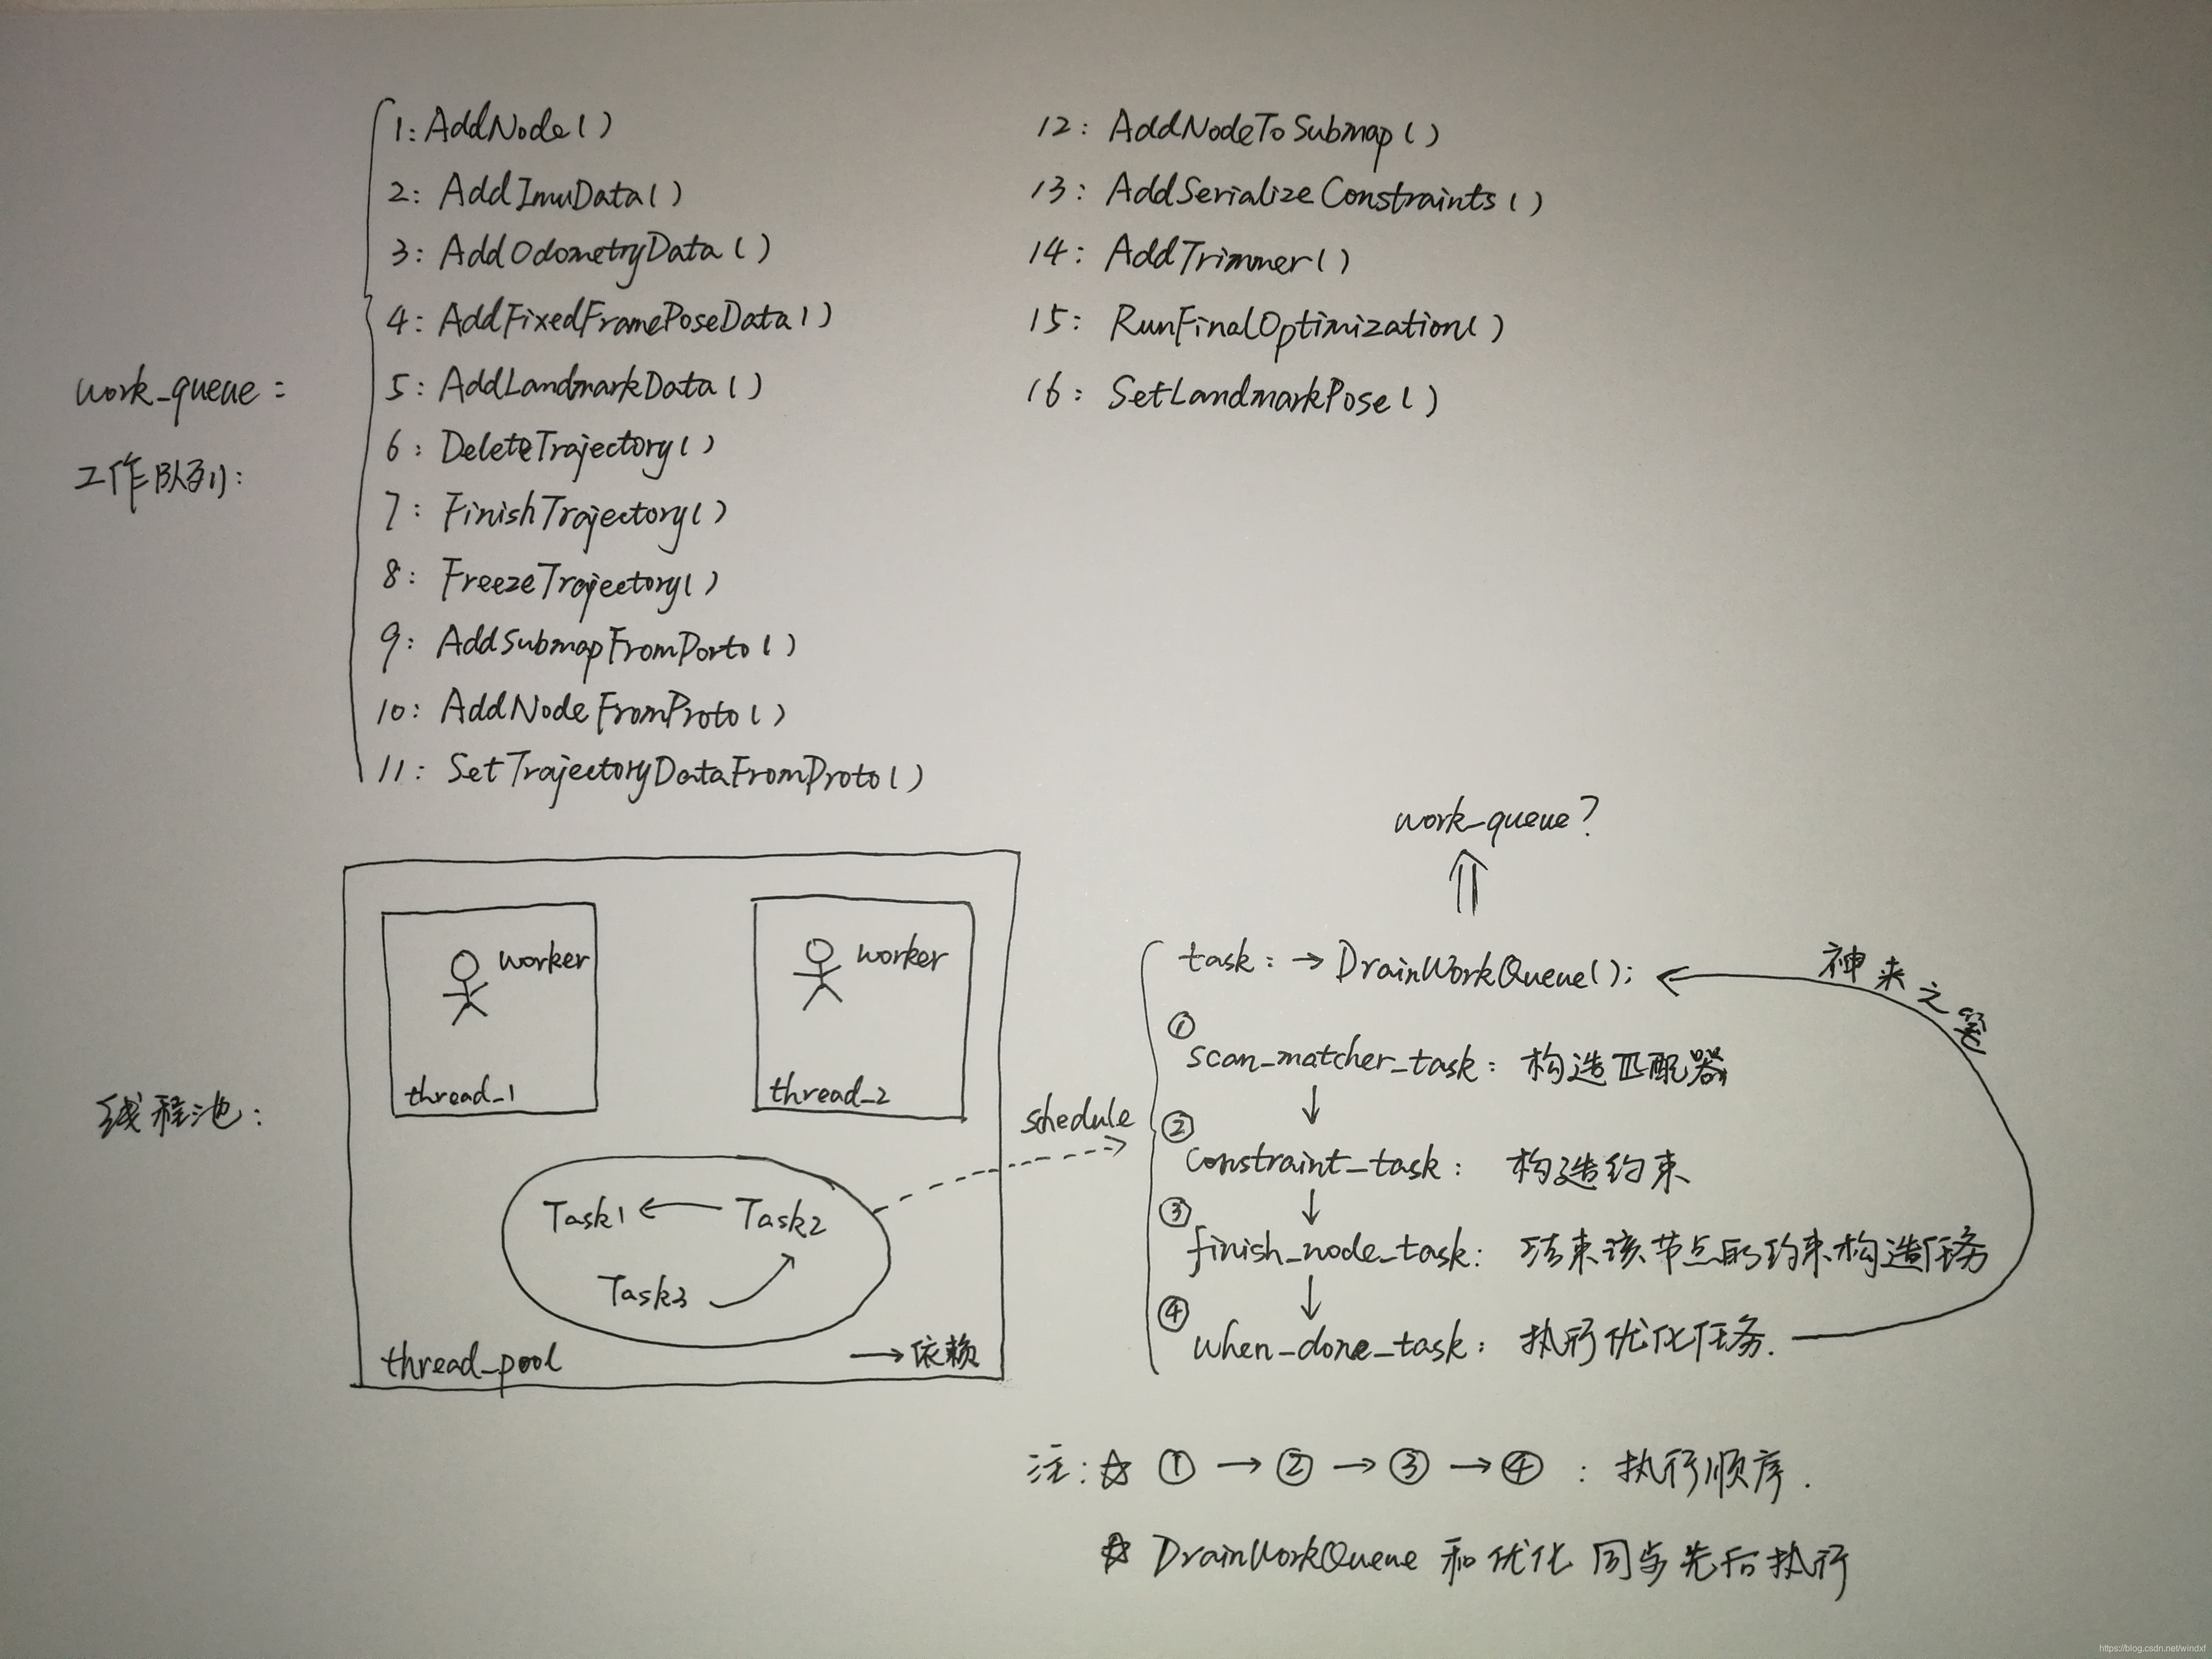 work_queue =
工作队列:
1: AddNode()
2: AddImuData()
3: AddOdometryData()
4: AddFixedFramePoseData()
5: AddLandmarkData()
6: DeleteTrajectory()
7: FinishTrajectory()
8: FreezeTrajectory()
9: AddSubmapFromPorto()
10: AddNodeFromProto()
11: SetTrajectoryDataFromProto()
12: AddNodeToSubmap()
13: AddSerializeConstraints()
14: AddTrimmer()
15: RunFinalOptimization()
16: SetLandmarkPose()
线程池:
worker
thread_1
worker
thread_2
Task1 ← Task2
Task3
thread_pool
→依赖
schedule
work_queue?
task: → DrainWorkQueue();
神来之笔
① scan_matcher_task: 构造匹配器
② constraint_task: 构造约束
③ finish_node_task: 结束该节点的约束构造任务
④ when_done_task: 执行优化任务.
注: ☆ ① → ② → ③ → ④ : 执行顺序.
☆ DrainWorkQueue 和优化 同步先后执行
https://blog.csdn.net/windxf